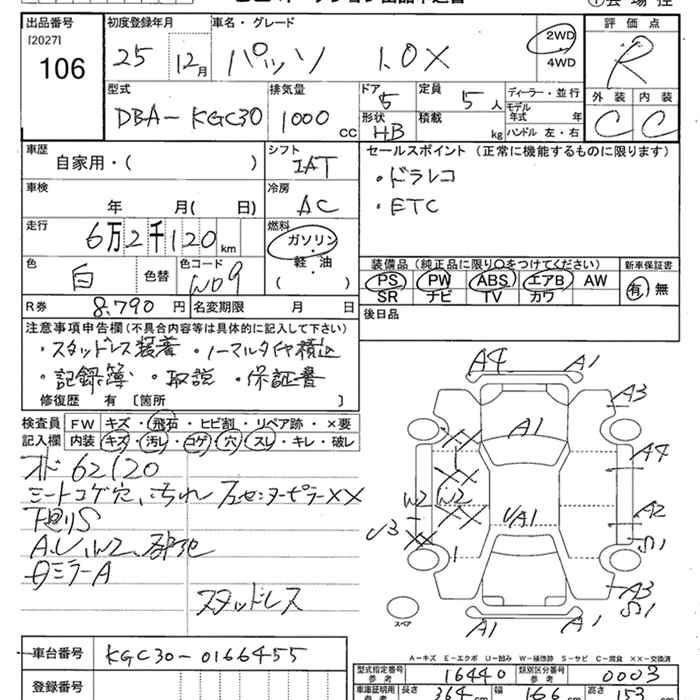 出品番号 初度登録年月 車名・グレード 評価点
[2027]
106 25 12月 パッソ 1.0X 2WD 4WD R
型式 排気量 ドア 定員 ディーラー・並行 外装 内装
DBA-KGC30 1000 cc 5 5人 モデル年式 年 C C
形状 積載 HB kg ハンドル 左・右
車歴 シフト セールスポイント (正常に機能するものに限ります)
自家用・( ) IAT ・ドラレコ
車検 冷房 ・ETC
年 月( 日) AC
走行 燃料
6万2千120km ガソリン・軽・油 ( )
色 色替 色コード 装備品(純正品に限り○をつけてください) 新車保証書
白 W09 PS PW ABS エアB AW 有・無
SR ナビ TV カワ
R券 8,790円 名変期限 月 日 後日品
注意事項申告欄(不具合内容等は具体的に記入して下さい)
・スタッドレス装着 ・ノーマルタイヤ積込
・記録簿 ・取説 ・保証書
修復歴 有 〔箇所 〕
検査員記入欄 FW キズ・飛石・ヒビ割・リペア跡・×要
内装 キズ・汚レ・コゲ・穴・スレ・キレ・破レ
62120
シートコゲ穴、汚れ 左センターピラーXX
下廻りS
A.U.W2,
ミラーA
スタッドレス
A4 A1
A3
A1
XX
A4
W2 W2
XX A2
U3 UA1
XX S1
A3
S1
スペア
A1 A1
A-キズ E-エクボ U-凹み W-補修跡 S-サビ C-腐食 XX-交換済
車台番号 KGC30-0166455
型式指定番号 参考 16440 類別区分番号 参考 0003
登録番号 車庫証明用 参考 長さ 364cm 幅 166cm 高さ 153cm